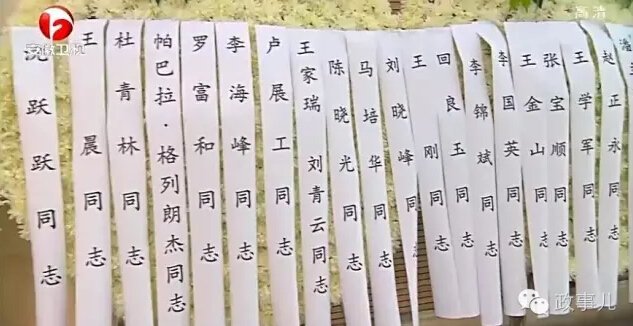 安徽卫视
高清
跃跃同志
王晨同志
杜青林同志
帕巴拉·格列朗杰同志
罗富和同志
李海峰同志
卢展工同志
王家瑞
刘青云同志
陈晓光同志
马培华同志
刘晓峰
王刚同志
回良玉同志
李锦斌同志
李国英同志
王金山同志
张宝顺同志
王学军同志
赵正永同志
政事儿